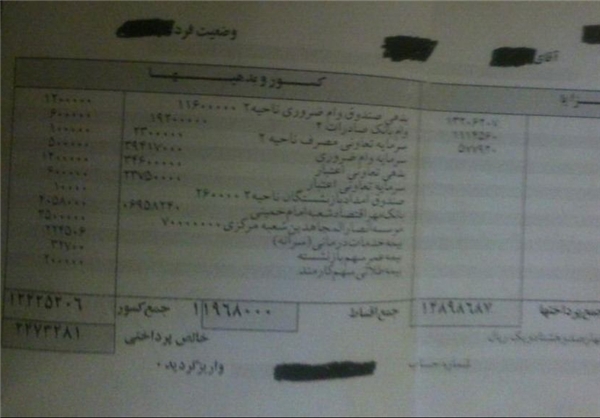 وضعیت فرد
آقای
کسور و بدهیها
بدهی صندوق وام ضروری ناحیه ۲ ۱۱۶۰۰۰۰۰ ۱۲۰۰۰۰۰
۱۳۲۰۶۲۰۷ وام بانک صادرات ۴ ۱۹۲۰۰۰۰۰ ۶۰۰۰۰۰
سرمایه تعاونی مصرف ناحیه ۲ ۲۳۰۰۰۰۰ ۱۰۰۰۰۰
سرمایه وام ضروری ۳۹۴۱۷۰۰۰ ۵۰۰۰۰۰
بدهی تعاونی اعتبار ۳۴۶۰۰۰۰۰ ۱۲۰۰۰۰۰
سرمایه تعاونی اعتبار ۲۳۷۵۰۰۰۰ ۶۰۰۰۰۰
صندوق امداد بازنشستگان ناحیه ۲ ۲۶۰۰۰۰۰ ۱۰۰۰۰
بانک مهر اقتصاد شعبه امام خمینی ۰۶۹۵۸۲۴۰ ۲۰۵۸۰۷۰
موسسه انصار المجاهدین شعبه مرکزی ۷۰۰۰۰۰۰۰ ۳۵۰۰۰۰۰
بیمه خدمات درمانی (سرانه) ۲۲۴۵۰۶
بیمه عمر سهم بازنشسته ۳۲۷۰۰
بیمه طلائی سهم کارمند ۲۰۰۰۰۰
جمع پرداختها ۱۳۸۹۸۶۸۷ جمع اقساط ۱۱۹۶۸۰۰۰ جمع کسور ۱۲۲۲۵۲۰۶
خالص پرداختی ۲۲۷۳۲۸۱
شماره حساب واریز گردید.